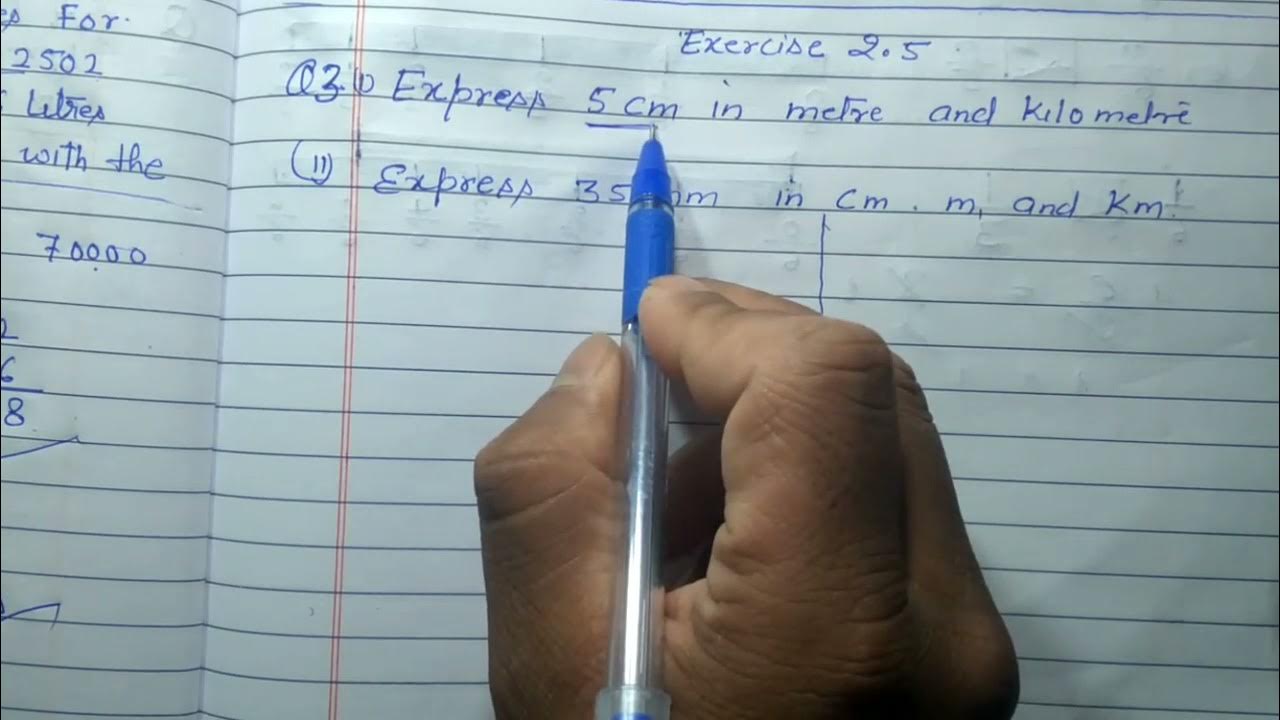 For.
2502
litres
with the
70000
8
Exercise 2.5
Q3.(i) Express 5 cm in metre and kilometre
(ii) Express 35 mm in cm. m, and km.